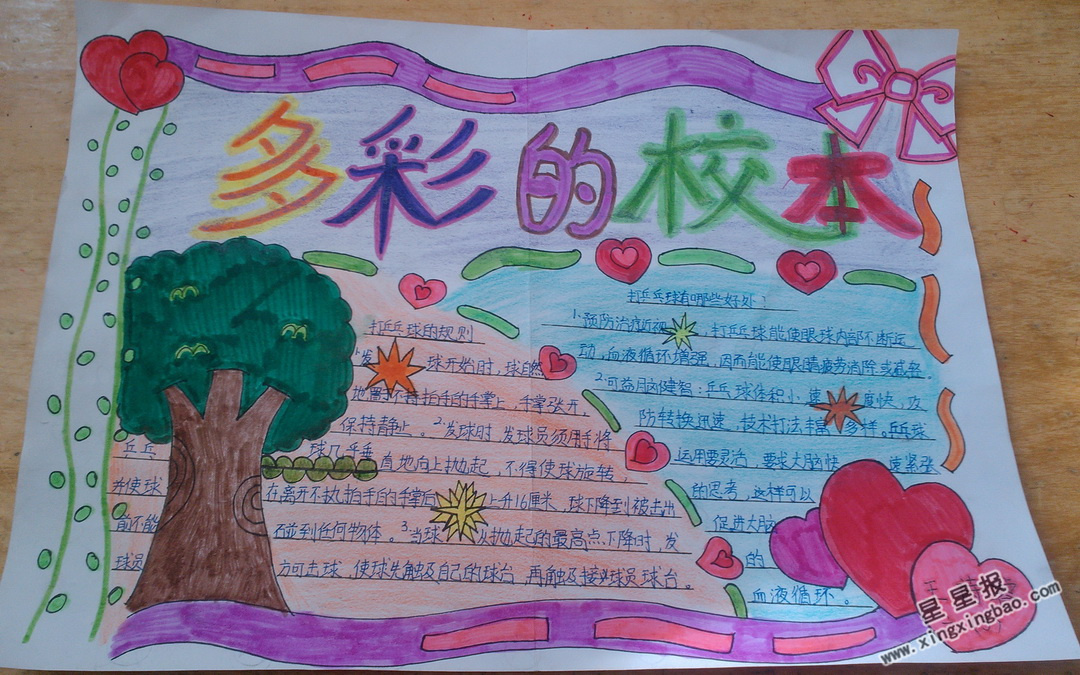 多彩的校本
打乒乓球的规则
1、发球开始时，球自然
地置于不持拍手的手掌上，手掌张开，
保持静止。2、发球时，发球员须用手将
乒乓球几乎垂直地向上抛起，不得使球旋转，
并使球在离开不执拍手的手掌后上升16厘米，球下降到被击出
前不能碰到任何物体。3、当球从抛起的最高点下降时，发
球员方可击球，使球先触及自己的球台，再触及接发球员球台。
打乒乓球有哪些好处？
1、预防治疗近视 打乒乓球能使眼球内部不断运
动，血液循环增强，因而能使眼睛疲劳消除或减轻。
2、可益脑健智：乒乓球体积小，速度快，攻
防转换迅速，技术打法丰富多样。乒乓球
运用要灵活，要求大脑快速紧张
的思考，这样可以
促进大脑
的
血液循环。
星星报
www.xingxingbao.com